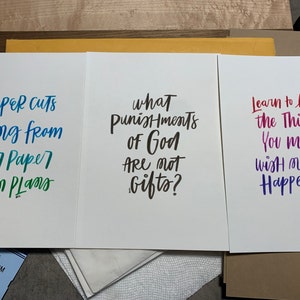 CUTS
from
Paper
PLANS
what
PUNISHMENTS
OF GOD
ARE NOT
GIFTS?
Learn to
the
You
wish